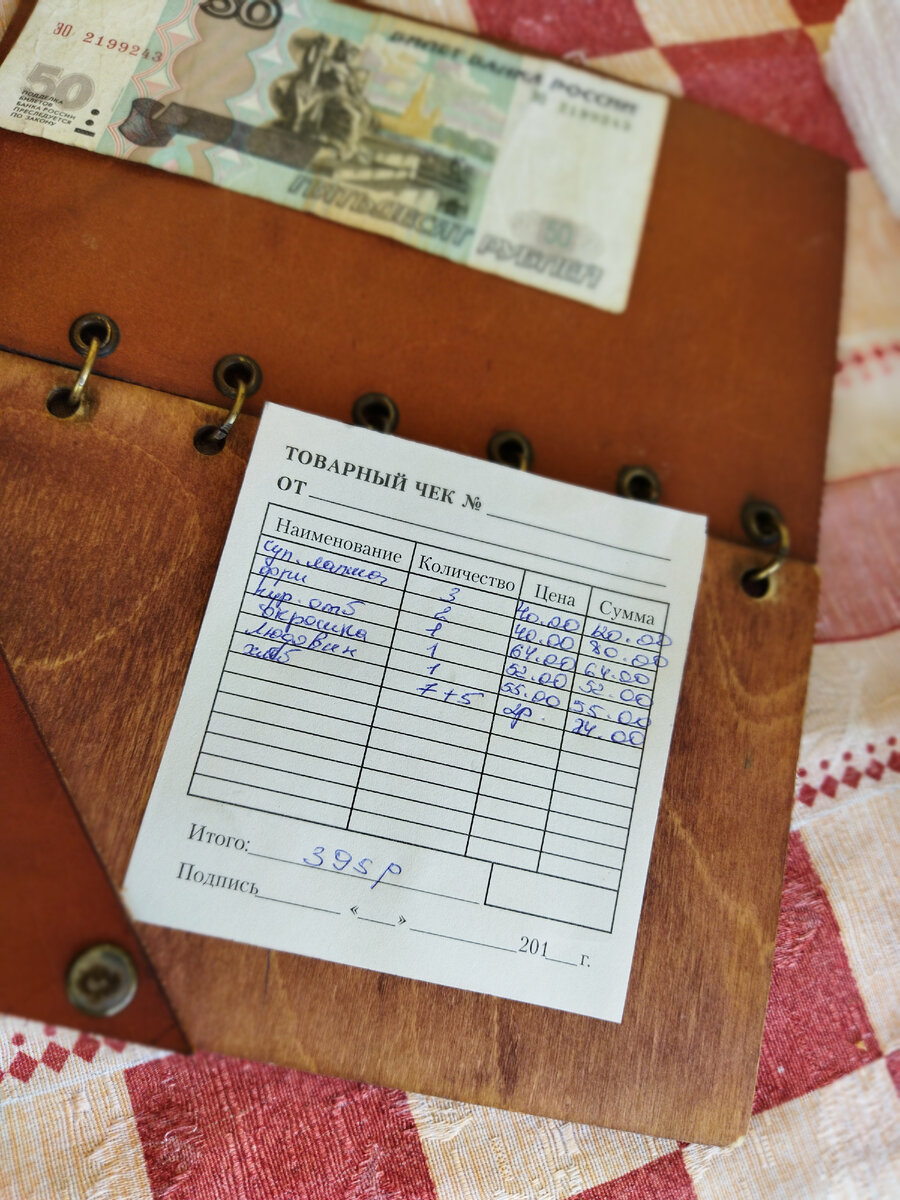 50
ЗО 2199243
БИЛЕТ БАНКА РОССИИ
ЗО 2199243
50
ПОДДЕЛКА
БИЛЕТОВ
БАНКА РОССИИ
ПРЕСЛЕДУЕТСЯ
ПО ЗАКОНУ
50
ПЯТЬДЕСЯТ РУБЛЕЙ
ТОВАРНЫЙ ЧЕК №
ОТ
Наименование Количество Цена Сумма
суп. лапша 3 40.00 120.00
фри 2 40.00 80.00
кур. отб 1 64.00 64.00
окрошка 1 52.00 52.00
1 55.00 55.00
хлеб 7+5 2р. 24.00
Итого: 395р
Подпись « » 201 г.